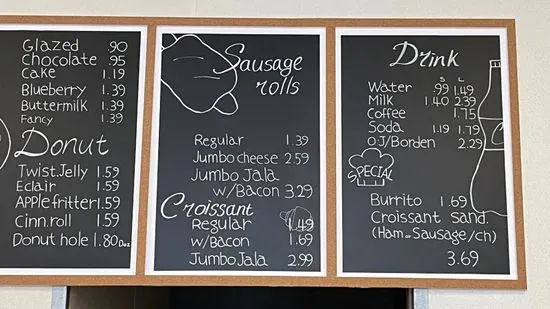 Glazed .90
Chocolate .95
Cake 1.19
Blueberry 1.39
Buttermilk 1.39
Fancy 1.39
Donut
Twist.Jelly 1.59
Eclair 1.59
APPle fritter 1.59
Cinn.roll 1.59
Donut hole 1.80 Doz
Sausage
rolls
Regular 1.39
Jumbo cheese 2.59
Jumbo Jala
w/Bacon 3.29
Croissant
Regular 1.49
w/Bacon 1.69
Jumbo Jala 2.99
Drink
S L
Water .99 1.49
Milk 1.40 2.39
Coffee 1.75
Soda 1.19 1.79
OJ/Borden 2.29
SPECIAL
Burrito 1.69
Croissant Sand.
(Ham or Sausage/ch)
3.69